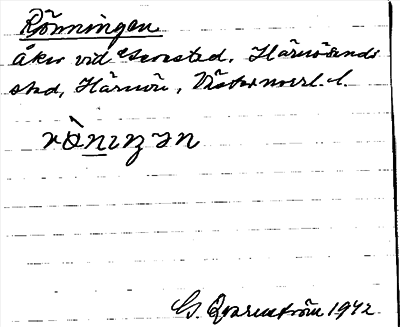 Rönningen
Åker vid Geresta, Härnösands
stad, Härnön, Västernorrl. l.
rò̱nıŋən
G. Qvarnström 1942